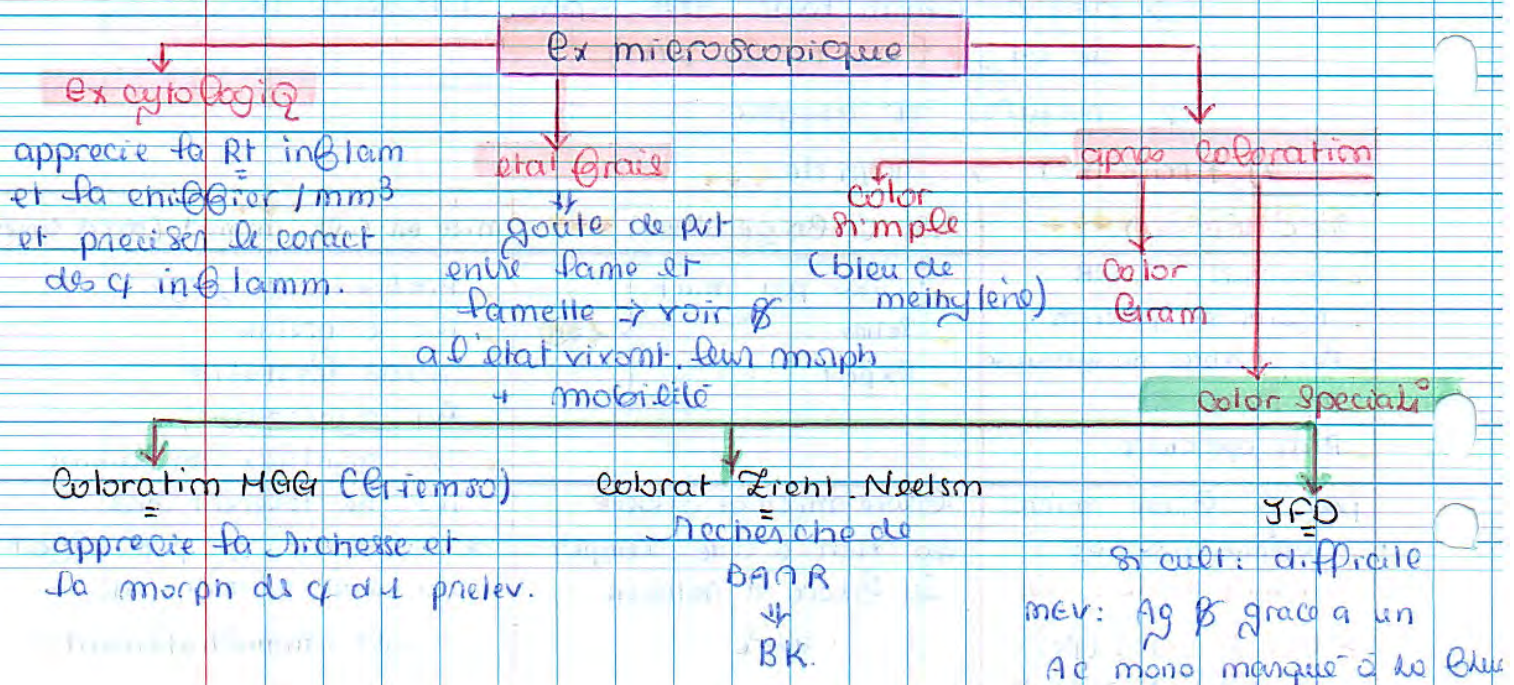 ex microscopique
ex cytologiQ
apprecie la Rt inflam
et la chiffrer / mm³
et preciser le caract
des inflamm.
etat frais
goute de pvt
entre lame et
lamelle → voir
a l'etat vivant. leur morph
+ mobilité
apres coloration
color
simple
(bleu de
methylene)
Color
Gram
Color Speciali°
Coloration MGG (Giemsa)
apprecie la richesse et
la morph ds prelev.
Colorat Ziehl. Neelsen
recherche de
BAAR
BK.
IFD
Si cult: difficile
MEV: Ag grace a un
AC mono marqué à la